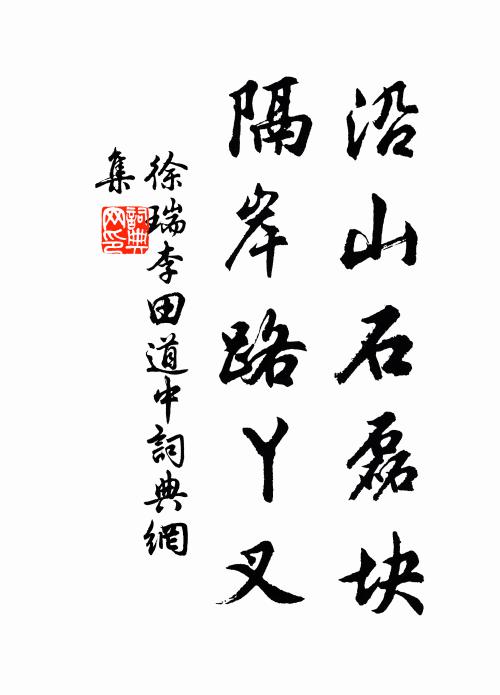 沿山石磊块
隔岸路丫叉
徐瑞李田道中詞典網
集
詞典
网印